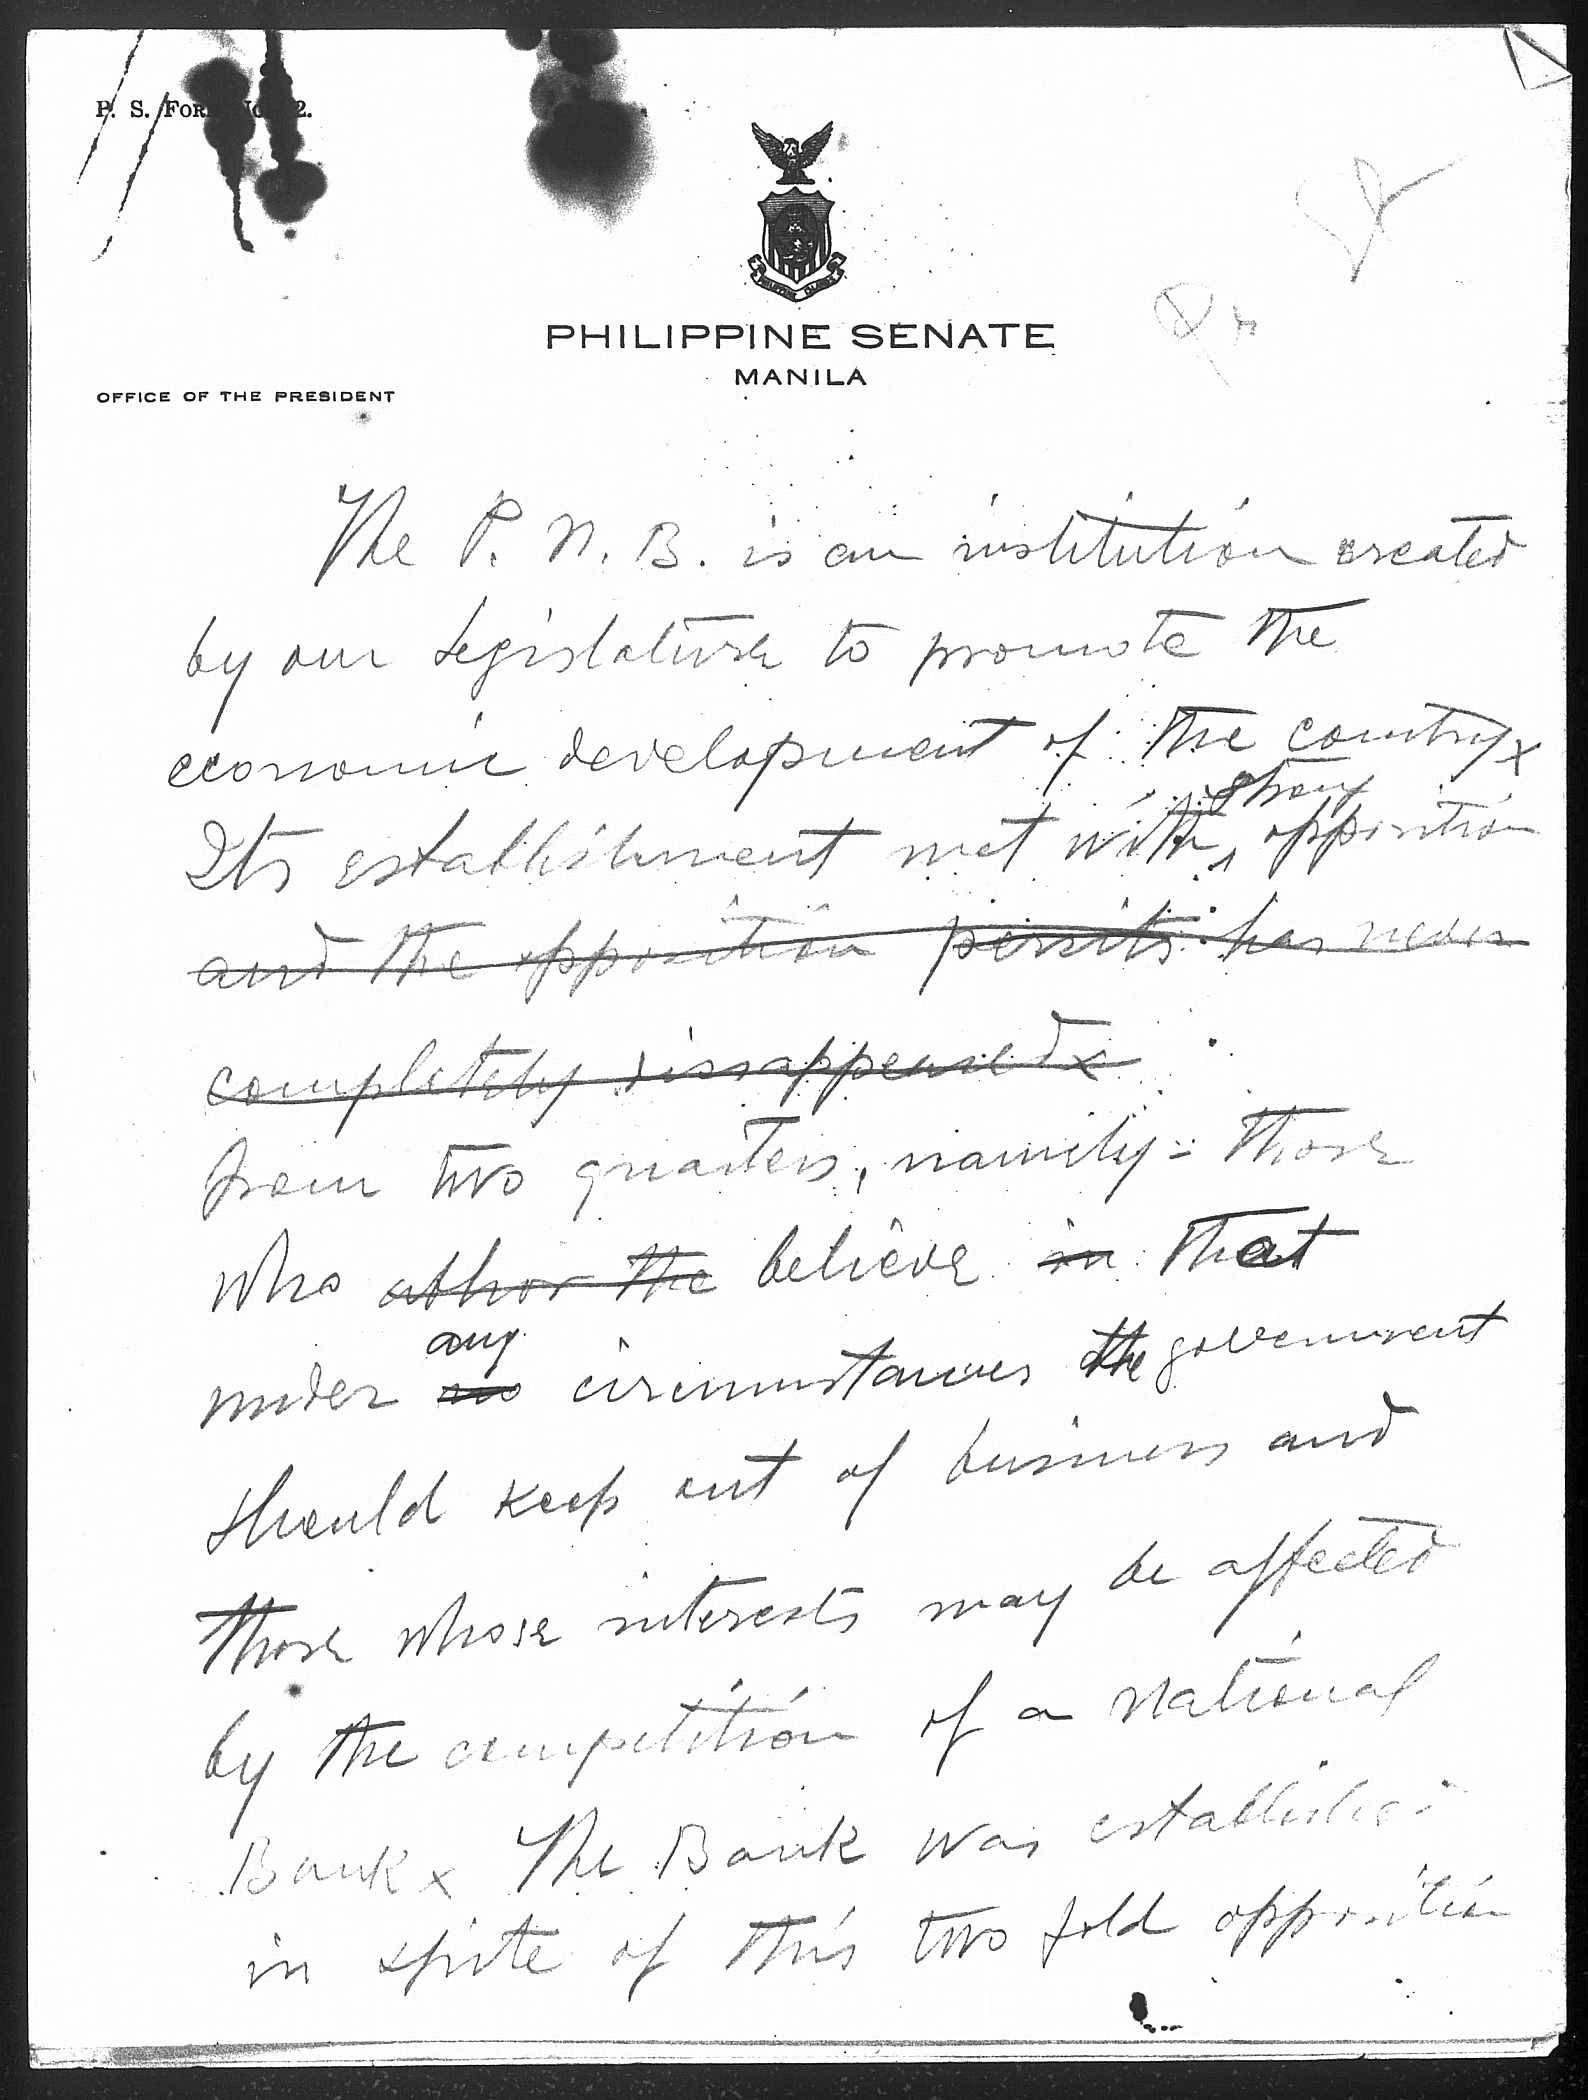 P. S. FORM No. 2.
PHILIPPINE SENATE
MANILA
OFFICE OF THE PRESIDENT
The P. N. B. is an institution created
by our Legislature to promote the
economic development of the country x
strong
Its establishment met with ^ opposition
and the opposition persists has never
completely dissappeared x
from two quarters, namily = those
who abhor the believe in that
any
under no circumstances the government
should keep out of business and
those whose interests may be affected
by the competition of a National
Bank x The Bank was established
in spite of this two fold opposition